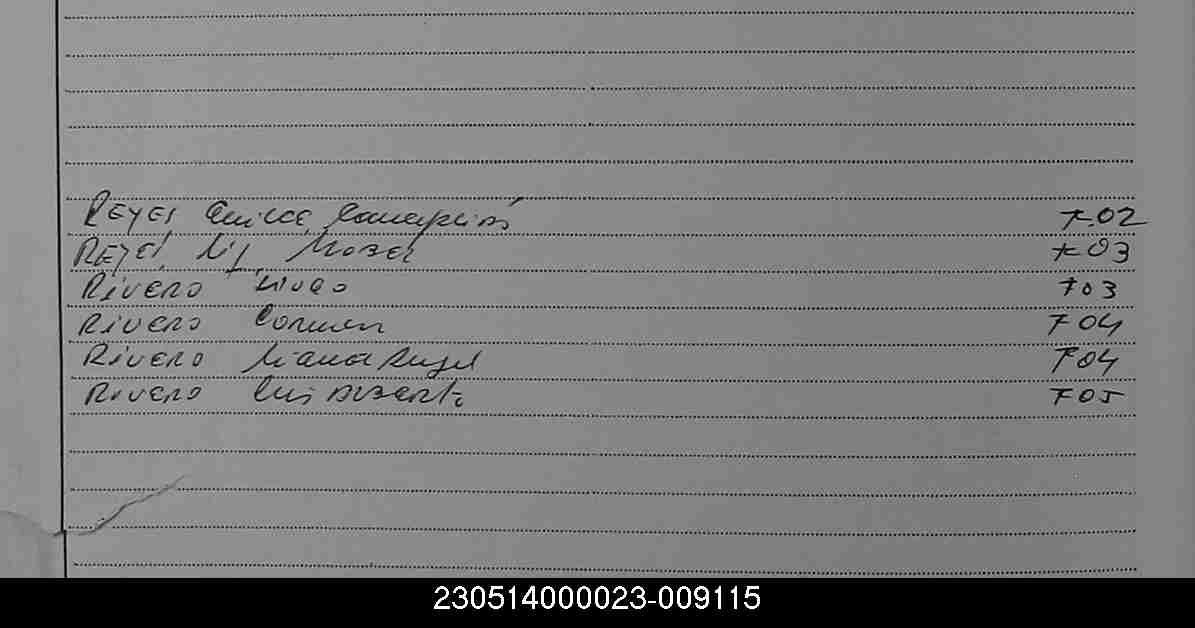 REYES Concepción 7.02
REYES 703
RIVERO 703
RIVERO Carmen 704
RIVERO Maria Angel 704
RIVERO Luis Alberto 705
230514000023-009115